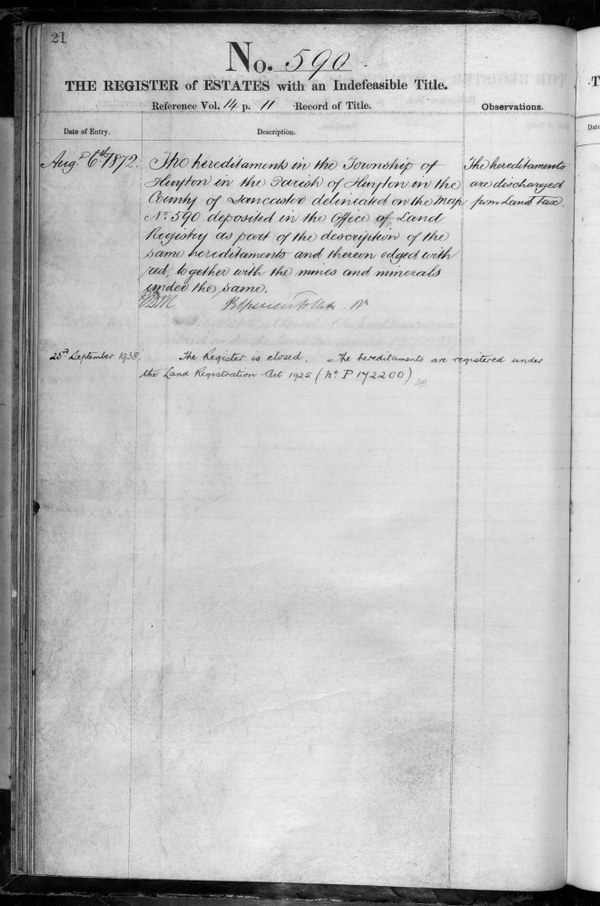 21
No. 590.
THE REGISTER of ESTATES with an Indefeasible Title.
Reference Vol. 14 p. 11 Record of Title.
Observations.
Date of Entry.
Description.
Augt 6th 1872.
The hereditaments in the Township of
Huyton in the Parish of Huyton in the
County of Lancaster delineated on the Map
No. 590 deposited in the Office of Land
Registry as part of the description of the
same hereditaments and thereon edged with
red, together with the mines and minerals
under the same.
The hereditaments
are discharged
from Land Tax.
25th September 1938.
The Register is closed. The hereditaments are registered under
the Land Registration Act 1925 (No P 172200)